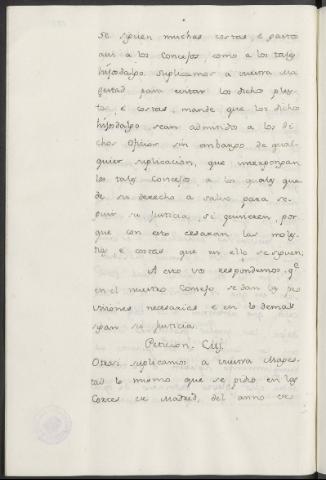 se siguen muchas costas, e pasto
ansi a los Concejos, como a los tales
hijosdalgo. suplicamos a vuestra Ma
gestad para evitar los dichos pley
tos, e costas, mande que los dichos
hijosdalgo sean admitidos a los di
chos Oficios sin embargo de qual
quier suplicacion, que interpongan
los tales Concejos a los quales que
de su derecho a salvo para se
guir su Justicia, si quisieren, por
que con esto cesaran las moles
tias e costas que en ello se siguen;
A esto vos respondemos, qe
en el nuestro Consejo se dan las pro
visiones necesarias e en lo demas
sigan su Justicia.
Peticion. CIIJ.
Otrosi suplicamos a vuestra Mages
tad lo mismo que se pidio en las
Cortes de Madrid, del anno de